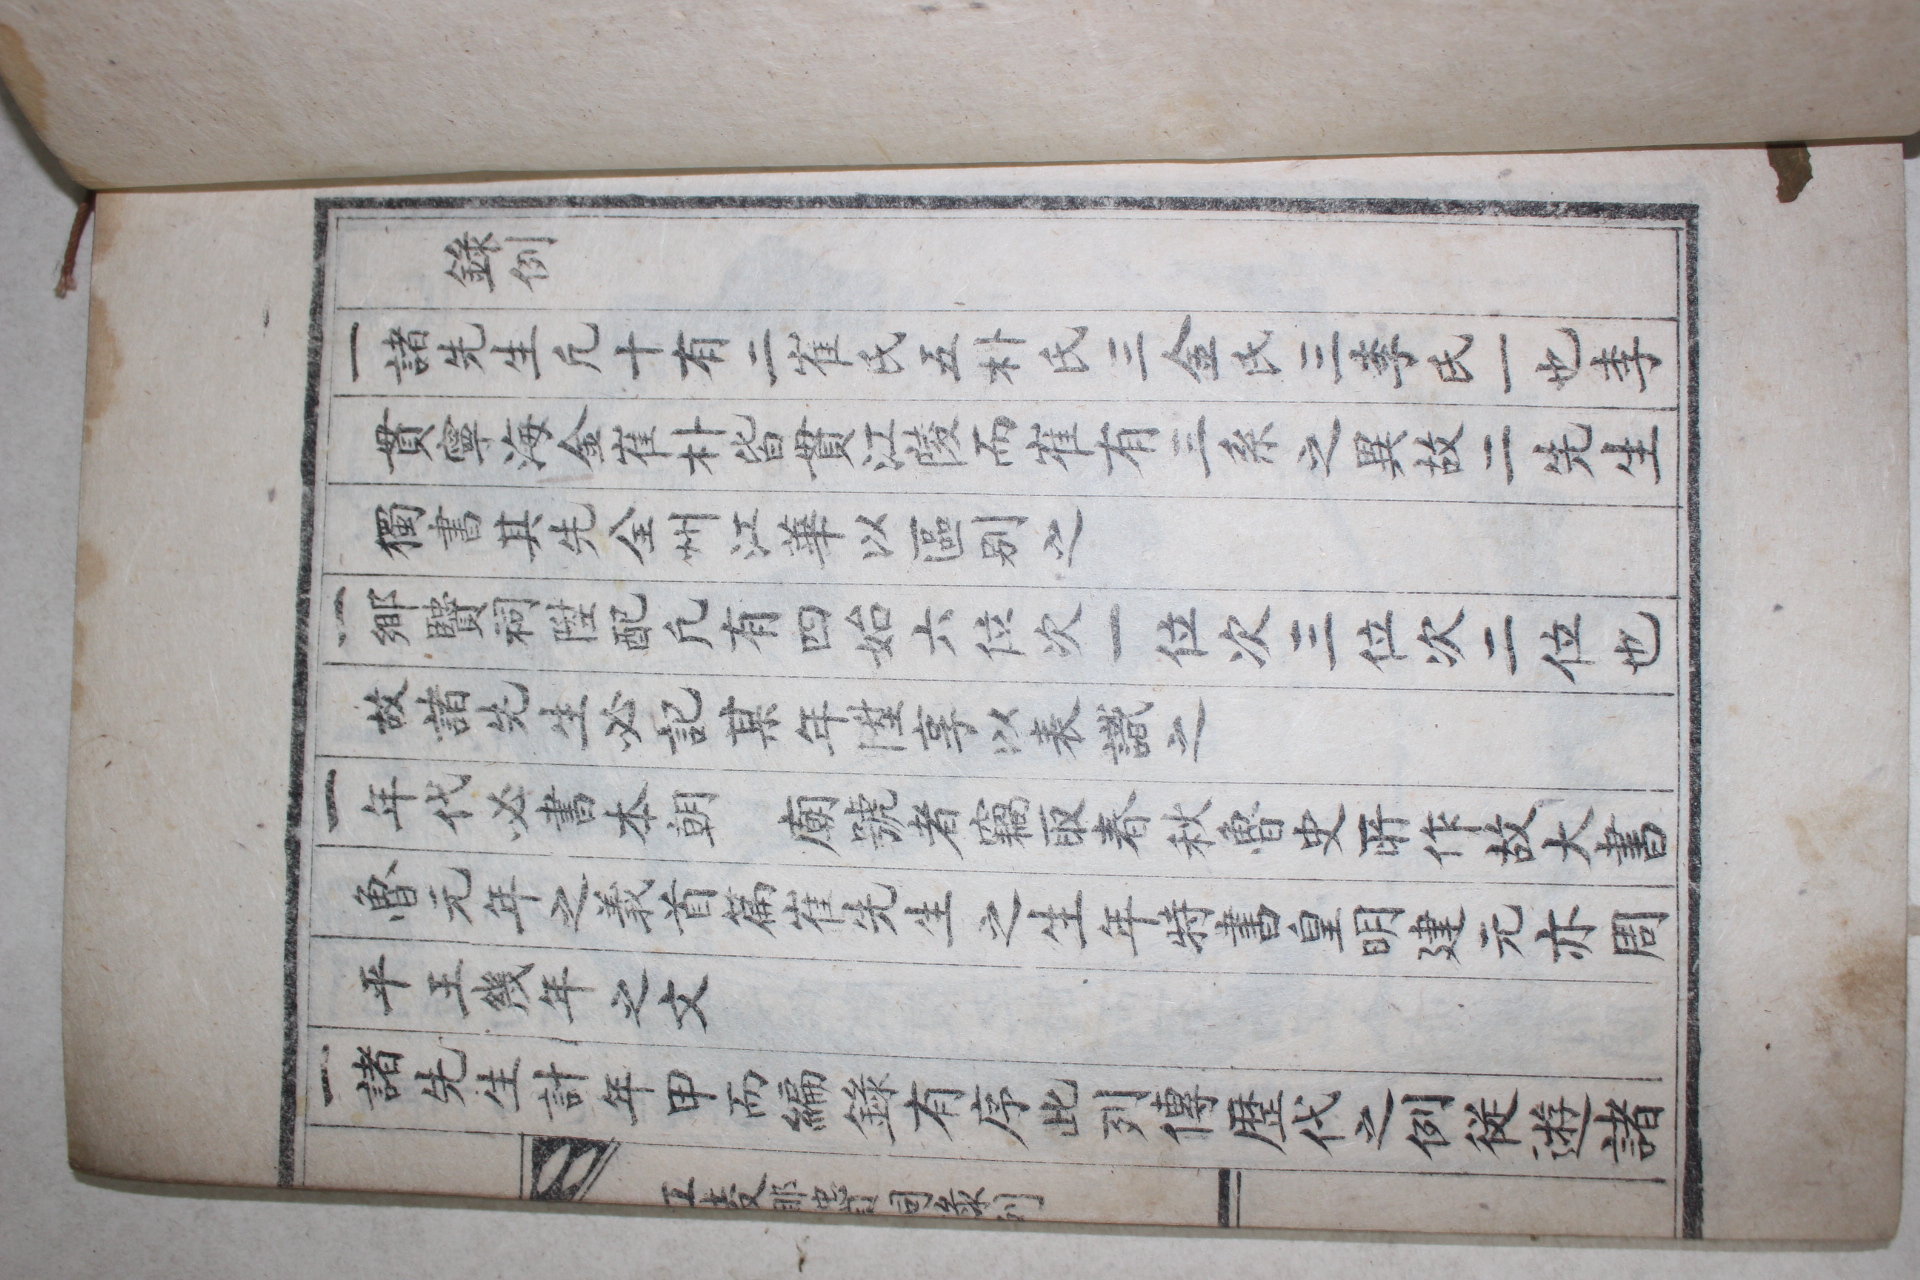 錄例
一諸先生凡十有二崔氏五朴氏三金氏三李氏一也李
貫寧海金崔朴皆貫江陵而崔有三系之異故二先生
獨書其先全州江華以區別之
一鄉賢祠陞配凡有四始六位次一位次三位次二位也
故諸先生必記某年陞享以表識之
一年代必書本朝 廟號者竊取春秋魯史所作故大書
魯元年之義首篇崔先生之生年特書皇明建元亦周
平王幾年之文
一諸先生計年甲而編錄有序此列傳歷代之例從遊諸
錄列